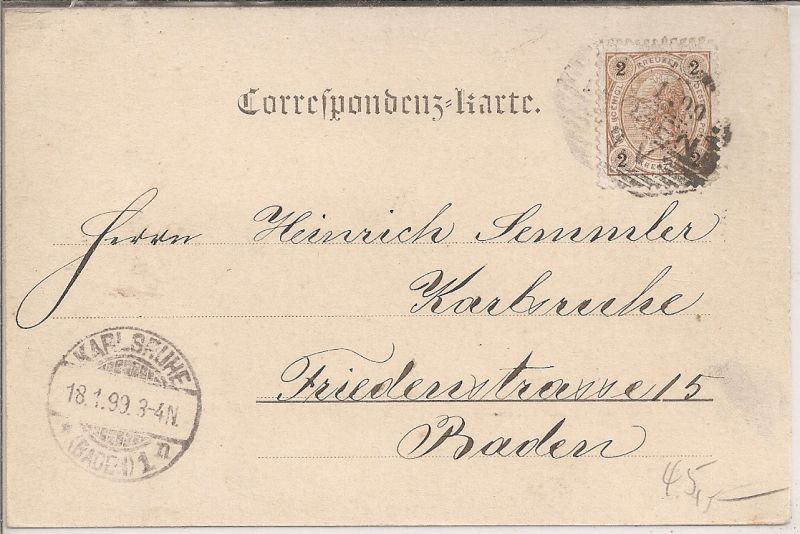 Correspondenz-Karte.
2 KREUZER 2
2 2
Herrn Heinrich Semmler
Karlsruhe
Friedenstrasse 15
Baden
KARLSRUHE
18.1.99. 3-4N.
(BADEN) 1n
45,-